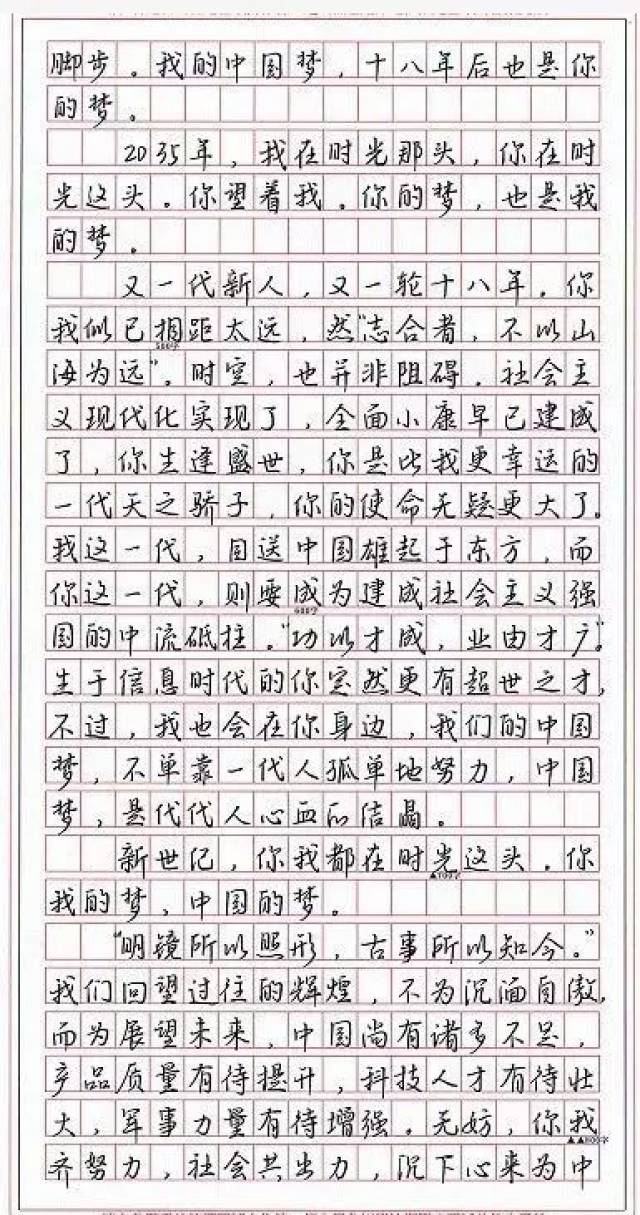 脚步。我的中国梦，十八年后也是你
的梦。
2035年，我在时光那头，你在时
光这头。你望着我。你的梦，也是我
的梦。
又一代新人，又一轮十八年。你
我似已相距太远，然“志合者，不以山
500字
海为远”。时空，也并非阻碍。社会主
义现代化实现了，全面小康早已建成
了，你生逢盛世，你是比我更幸运的
一代天之骄子，你的使命无疑更大了。
我这一代，目送中国雄起于东方，而
你这一代，则要成为建成社会主义强
600字
国的中流砥柱。“功以才成，业由才广。”
生于信息时代的你定然更有超世之才，
不过，我也会在你身边，我们的中国
梦，不单靠一代人孤单地努力，中国
梦，是代代人心血的结晶。
新世纪，你我都在时光这头。你
▲700字
我的梦、中国的梦。
“明镜所以照形，古事所以知今。”
我们回望过往的辉煌，不为沉湎自傲，
而为展望未来，中国尚有诸多不足，
产品质量有待提升，科技人才有待壮
大，军事力量有待增强。无妨，你我
▲▲800字
齐努力，社会共出力，沉下心来为中